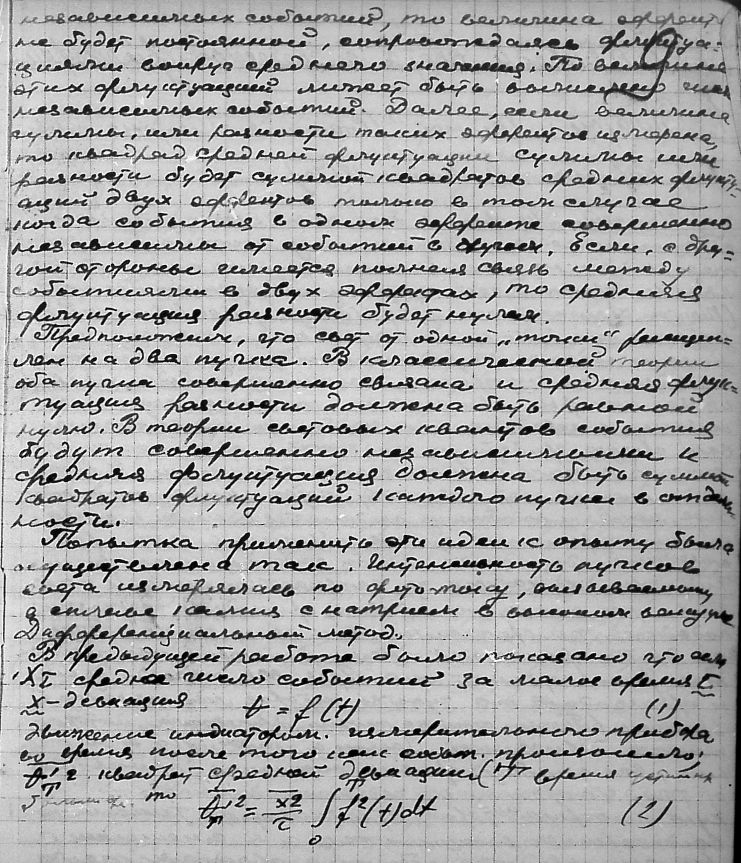 независимых событий, то величина эффекта
не будет постоянной, сопровождаясь флуктуа-
циями вокруг среднего значения. По величине
этих флуктуаций может быть вычислено число
независимых событий. Далее, если величина
суммы, или разности таких эффектов измерена,
то квадрад средней флуктуации суммы или
разности будет суммой квадратов средних флукту-
аций двух эффектов только в том случае
когда события в одном эффекте совершенно
независимы от событий в другом. Если, с дру-
гой стороны имеется полная связь между
событиями в двух эффектах, то средняя
флуктуация разности будет нулем.
Предположим, что свет от одной „точки" расщеп-
лен на два пучка. В классической теории
оба пучка совершенно связана и средняя флук-
туация разности должна быть равной
нулю. В теории световых квантов события
будут совершенно независимыми и
средняя флуктуация должна быть суммой
квадратов флуктуаций каждого пучка в отдель-
ности.
Попытка применить эти идеи к опыту была
осуществлена так. Интенсивность пучков
света измерялась по фототоку, вызываемому
в сплаве калия с натрием в высоком вакууме
Дифференциальный метод.
В предыдущей работе было показано что если
X̅ средне число событий за малое время τ
x - девиация θ = f(t) (1)
движение индикатором. измерительного прибора
во время после того как событ. произошло,
квадрат средней девиации время
то θ̅² = x̅²/τ ∫₀ᵀ f²(t)dt (2)